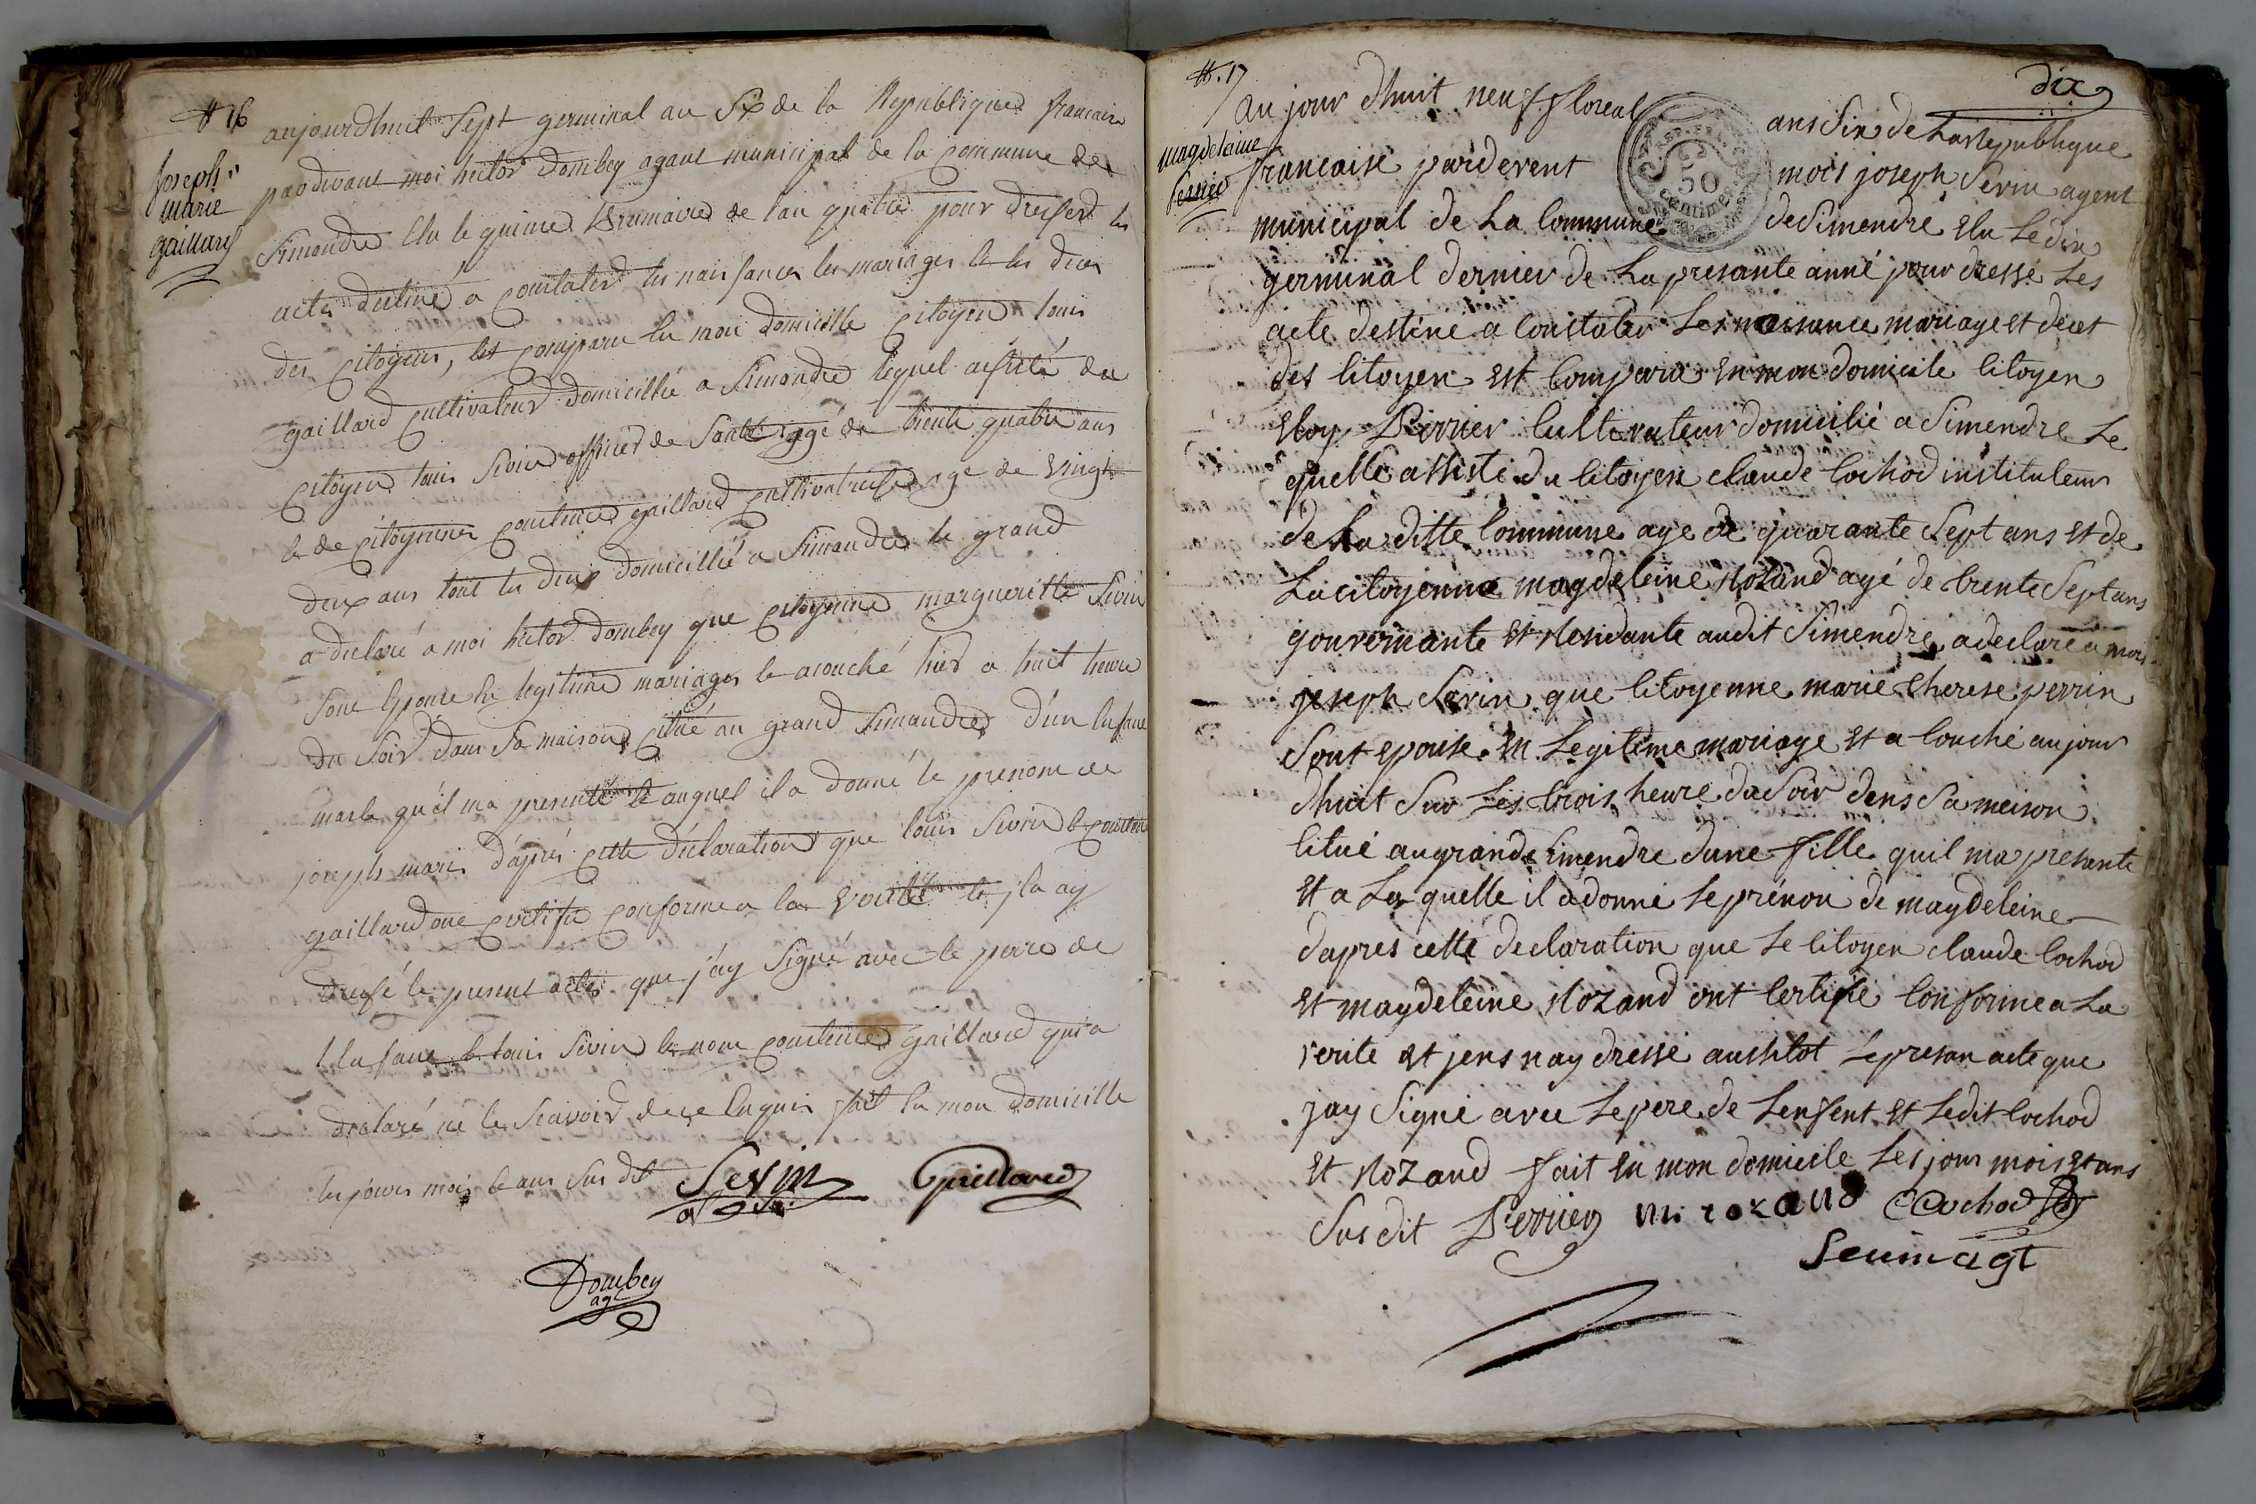 # 16
joseph
marie
gaillard
aujourd'huit Sept germinal an Six de la Republique francaise
pardevant moi hector dombey agant municipal de la commune de
Simandre Elu le quinze Brumaire de l'an quatre pour dresser les
actes destiné a constater les naissances les mariages et les deces
des citoyens, est comparu En mon domicille citoyen louis
gaillard cultivateur domicillié a Simandre lequel assisté du
citoyen louis Sivin officier de Santé agé de trente quatre ans
et de citoyenne constance gaillard cultivatrice age de vingt
deux ans tout les deux domicillié a Simandre le grand
a declaré a moi hector dombey que citoyenne margueritte Sivin
Son Epouse En legitime mariages et acouché hier a huit heure
du Soir dans Sa maison citué au grand Simandre d'un Enfant
masle qu'il ma presenté et auquel il a donné le prenom de
joseph marie d'aprés cette déclaration que louis Sivin et constance
gaillard ont certifié conforme a la verité et jla ay
dressé le present acte que j'ay Signé avec le pere de
l'Enfant et louis Sivin et non constance gaillard qui a
declaré ne le Scavoir de ce Enquis fait En mon domicille
les jours mois et ans Sus dit Sevin Gaillard
Dombey
ag
#. 17
dix
magdelaine
Perrier
au jour dhuit neuf floreal ans Six de La Republique
francaise pardevent mois joseph Sevin agent
municipal de La Commune de Simendre Elu Le dix
germinal dernier de La presante anné pour dressé Les
acte destine a Constater Les naissance mariage et deces
des Citoyen Est Comparu En mon domicile Citoyen
Eloy Perrier Cultivateur domicilié a Simendre Le
quelle assisté du Citoyen claude Cochod instituteur
de La ditte Commune age de quarante Sept ans et de
La citoyenne magdeleine Rozand agé de trente Sept ans
gouvernante et Residante audit Simendre a declaré a mois
joseph Sevin que Citoyenne marie therese perrin
Sont epouse En Legitime mariage Et a Couché aujour
dhuit Sur Les trois heure du Soir dens Sa meison
Citué au grande Simendre dune fille quil ma presanté
et a La quelle il a donné Le prénon de magdeleine
dapres cette declaration que Le Citoyen claude Cochod
et magdeleine Rozand ont Certifié Conforme a La
verite et jens nay dressé aussitot Le presan acte que
jay Signé avec Le pere de Lenfent et Ledit Cochod
et Rozand fait En mon domicile Les jour mois et ans
Sus dit Perrier m rozand Cochod
Sevin agt
50
Centimes